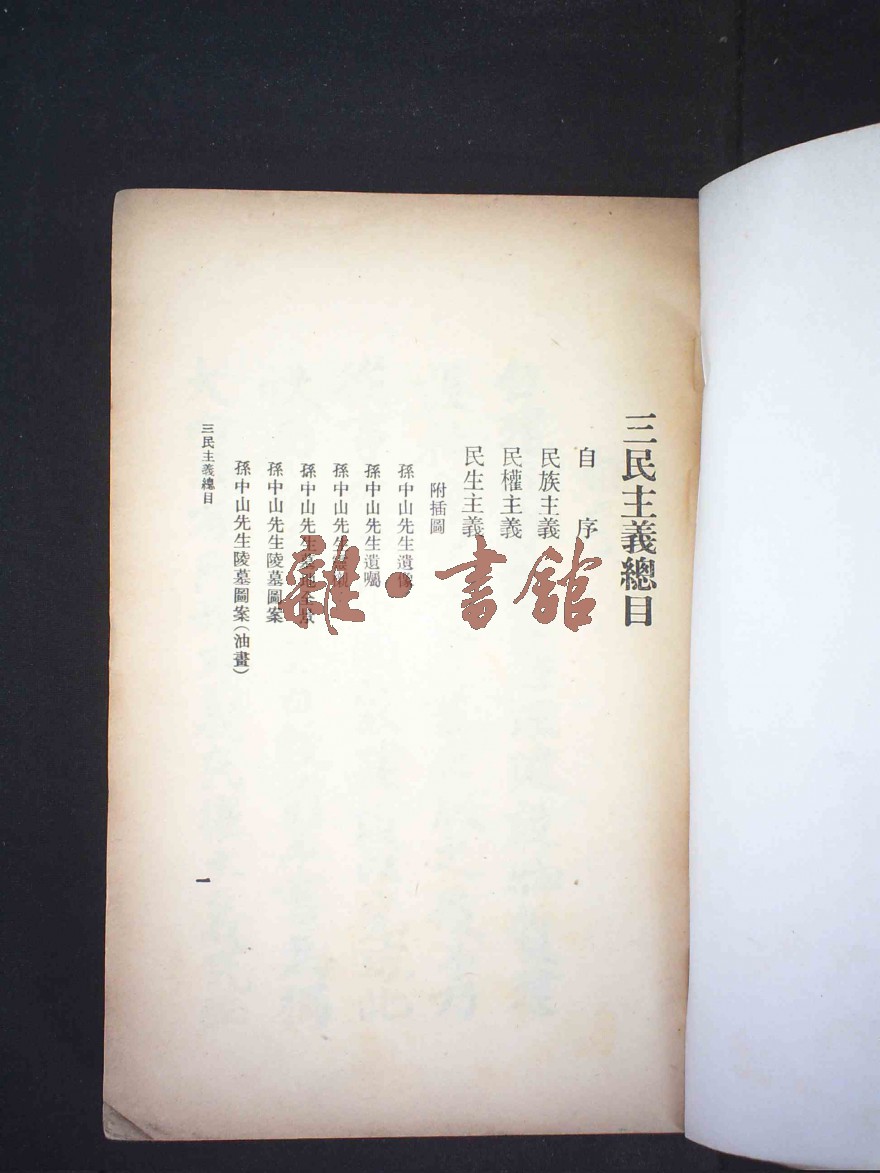 三民主義總目
自序
民族主義
民權主義
民生主義
附插圖
孫中山先生遺像
孫中山先生遺囑
孫中山先生
孫中山先生墓地全景
孫中山先生陵墓圖案
孫中山先生陵墓圖案(油畫)
三民主義總目
一
雜·書館